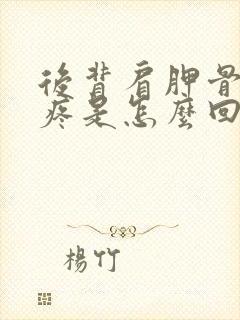 後背肩胛骨
疼是怎麼回
楊竹